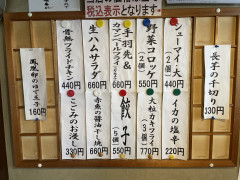 税込表示となります。
長芋の千切り
130円
シューマイ・大
440円
野菜コロッケ
(2個)
550円
手羽先&
660円
生ハムサラダ
660円
骨無フライドチキン
440円
イカの塩辛
220円
大粒カキフライ
770円
餃子
(5個)
550円
赤魚の醤油干し焼
660円
こごみのお浸し
330円
鳳凰卵のゆで玉子
160円